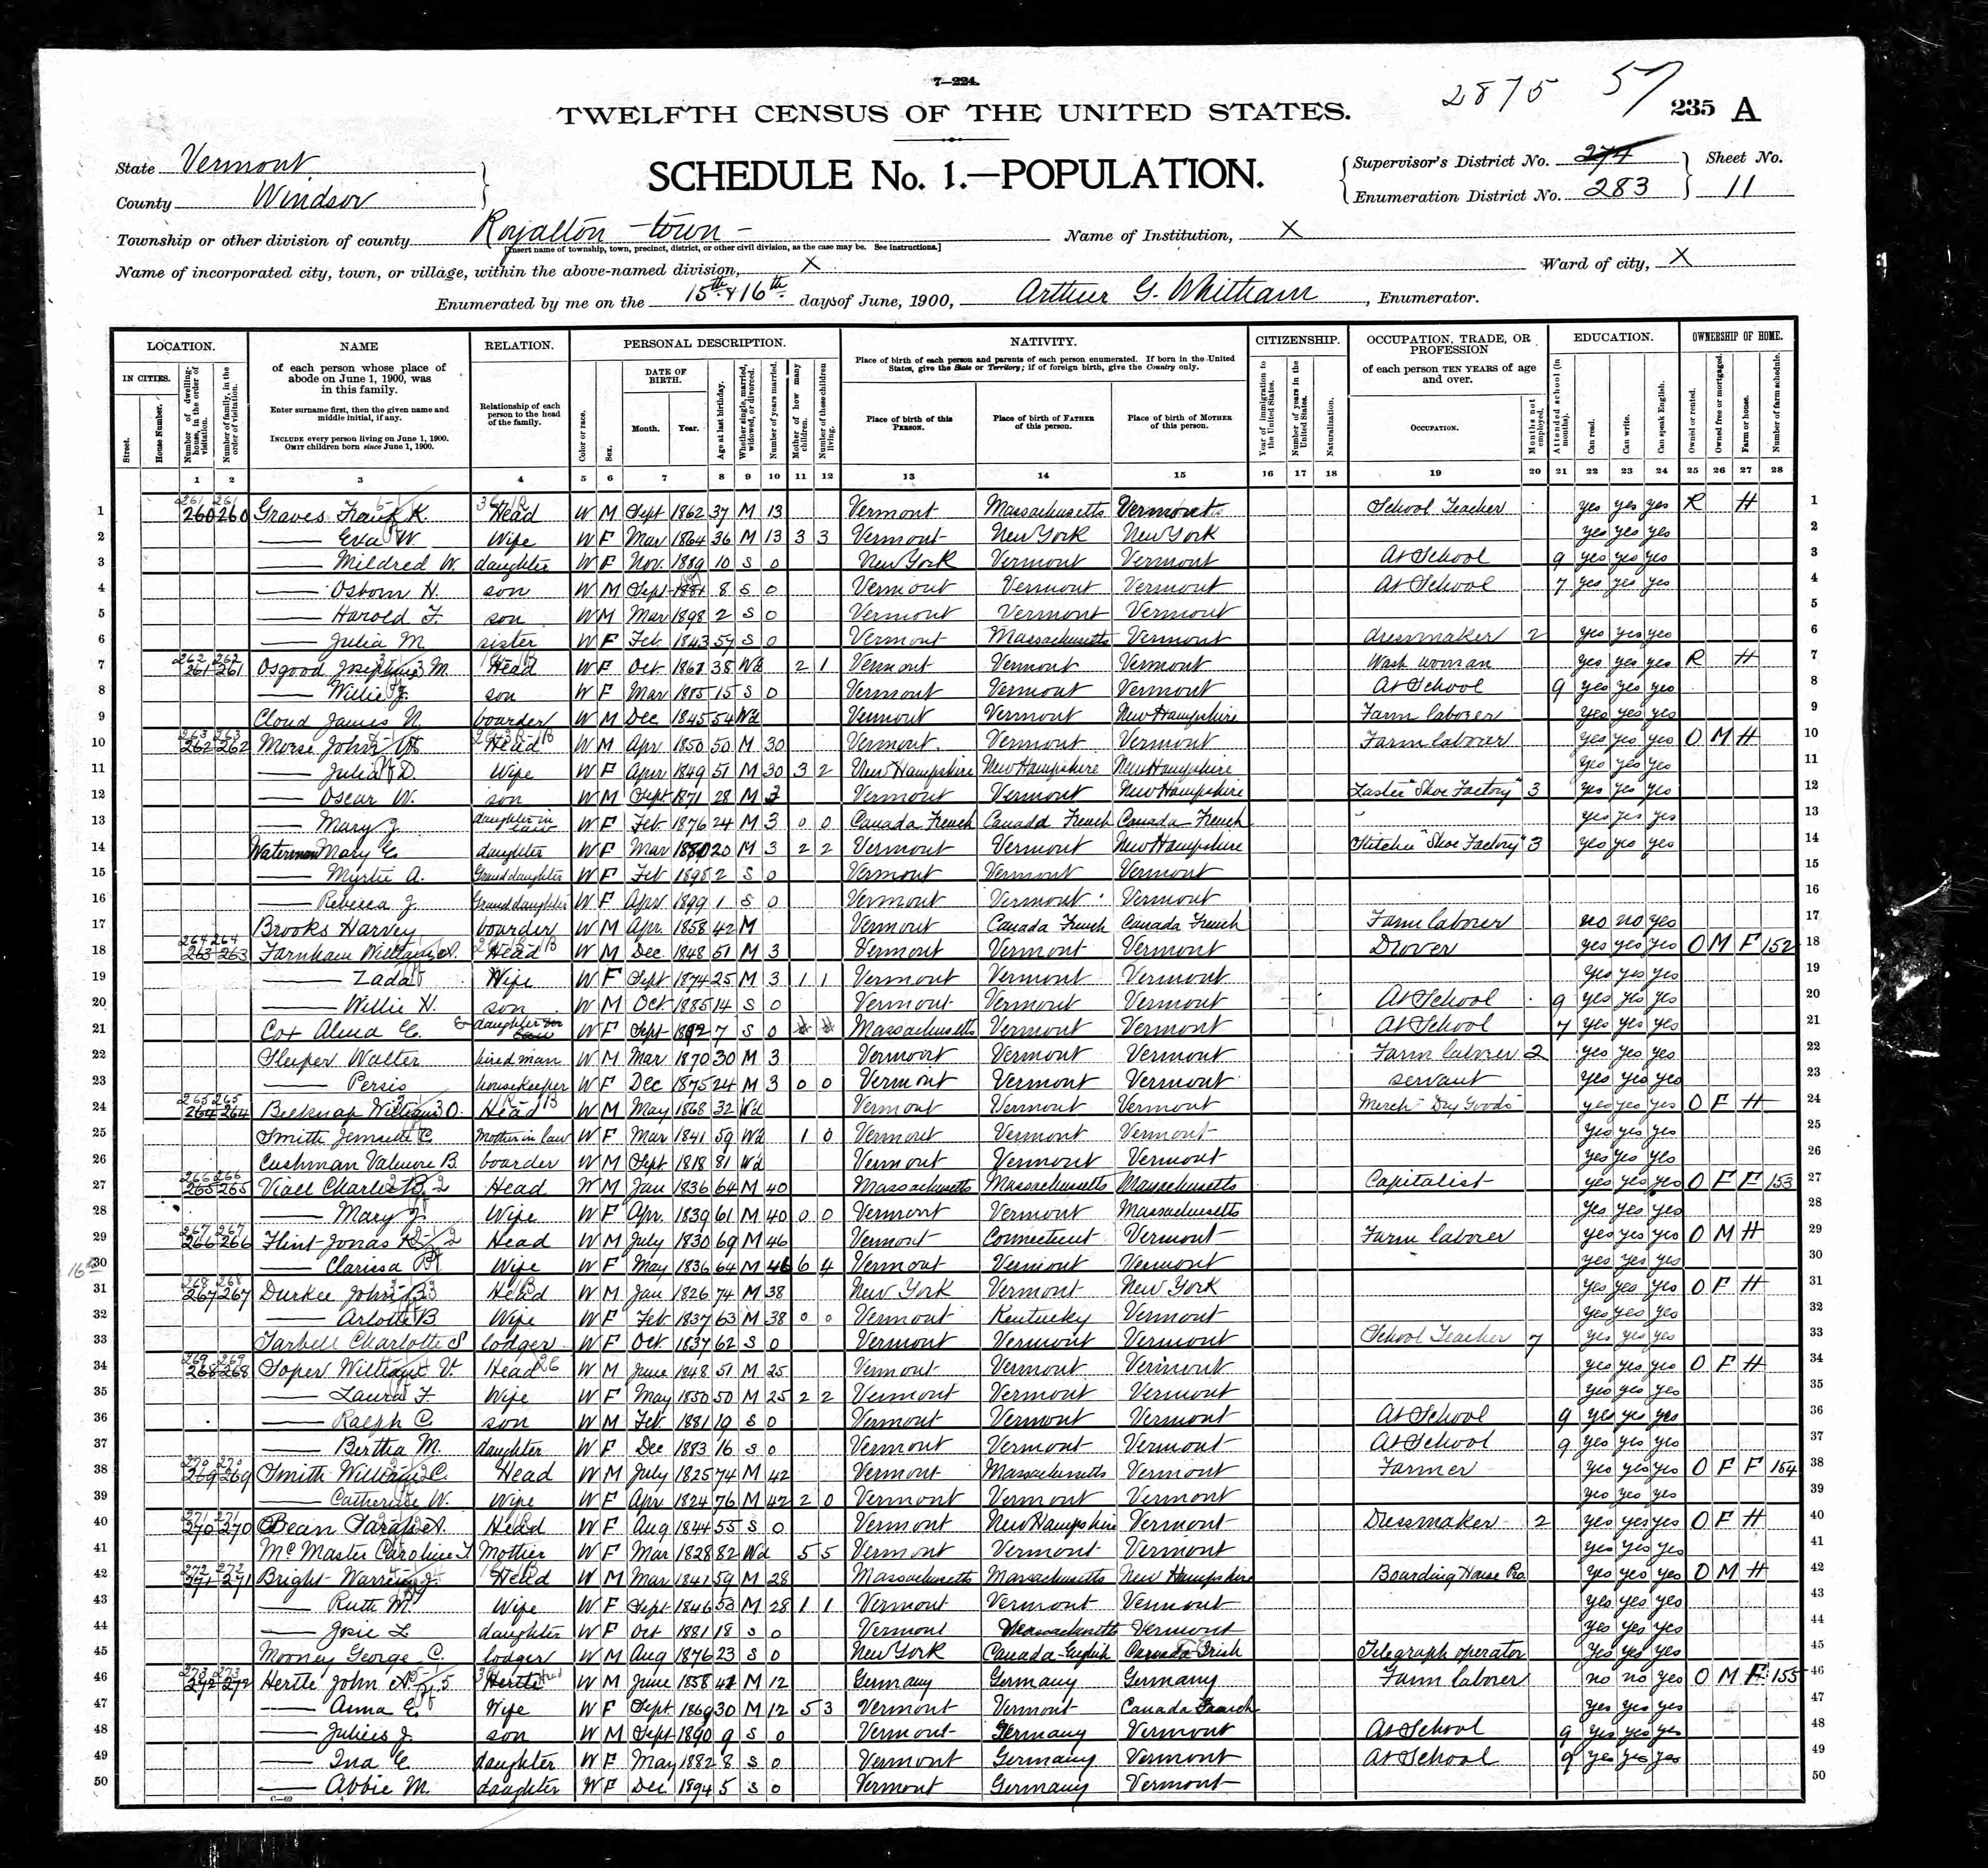 7—224.
2875 57
235 A
TWELFTH CENSUS OF THE UNITED STATES.
SCHEDULE No. 1.—POPULATION.
State Vermont
County Windsor
Supervisor's District No. 274 Sheet No.
Enumeration District No. 283 11
Township or other division of county Royalton -town- Name of Institution, X
[Insert name of township, town, precinct, district, or other civil division, as the case may be. See instructions.]
Name of incorporated city, town, or village, within the above-named division, X Ward of city, X
Enumerated by me on the 15th & 16th days of June, 1900, Arthur G. Whitham, Enumerator.
LOCATION. NAME RELATION. PERSONAL DESCRIPTION. NATIVITY. CITIZENSHIP. OCCUPATION, TRADE, OR PROFESSION EDUCATION. OWNERSHIP OF HOME.
IN CITIES. Street. House Number. Number of dwelling-house, in the order of visitation. Number of family, in the order of visitation.
of each person whose place of abode on June 1, 1900, was in this family.
Enter surname first, then the given name and middle initial, if any.
INCLUDE every person living on June 1, 1900. OMIT children born since June 1, 1900.
Relationship of each person to the head of the family.
Color or race. Sex. DATE OF BIRTH. Month. Year. Age at last birthday. Whether single, married, widowed, or divorced. Number of years married. Mother of how many children. Number of these children living.
Place of birth of each person and parents of each person enumerated. If born in the United States, give the State or Territory; if of foreign birth, give the Country only.
Place of birth of this PERSON. Place of birth of FATHER of this person. Place of birth of MOTHER of this person.
Year of immigration to the United States. Number of years in the United States. Naturalization.
of each person TEN YEARS of age and over. OCCUPATION. Months not employed.
Attended school (in months). Can read. Can write. Can speak English.
Owned or rented. Owned free or mortgaged. Farm or house. Number of farm schedule.
1 2 3 4 5 6 7 8 9 10 11 12 13 14 15 16 17 18 19 20 21 22 23 24 25 26 27 28
1 261 261 260 260 Graves Frank K. Head W M Sept 1862 37 M 13 Vermont Massachusetts Vermont School Teacher yes yes yes R H 1
2 —— Eva W. Wife W F Mar 1864 36 M 13 3 3 Vermont New York New York yes yes yes 2
3 —— Mildred W. daughter W F Nov. 1889 10 S 0 New York Vermont Vermont At School 9 yes yes yes 3
4 —— Osborn H. son W M Sept 8 S 0 Vermont Vermont Vermont At School 7 yes yes yes 4
5 —— Harold F. son W M Mar 1898 2 S 0 Vermont Vermont Vermont 5
6 —— Julia M. sister W F Feb. 1843 57 S 0 Vermont Massachusetts Vermont dressmaker 2 yes yes yes 6
7 262 262 261 261 Osgood Josephine M Head W F Oct 1861 38 Wd 2 1 Vermont Vermont Vermont Wash woman yes yes yes R H 7
8 —— Willie J. son W F Mar 1885 15 S 0 Vermont Vermont Vermont At School 9 yes yes yes 8
9 Cloud James N. boarder W M Dec 1845 54 Wd Vermont Vermont New Hampshire Farm laborer yes yes yes 9
10 263 263 262 262 Morse John Head W M Apr 1850 50 M 30 Vermont Vermont Vermont Farm laborer yes yes yes O M H 10
11 —— Julia D. Wife W F Apr 1849 51 M 30 3 2 New Hampshire New Hampshire New Hampshire yes yes yes 11
12 —— Oscar W. son W M Sept 1871 28 M 3 Vermont Vermont New Hampshire Laster "Shoe Factory" 3 yes yes yes 12
13 —— Mary J. daughter in law W F Feb. 1876 24 M 3 0 0 Canada French Canada French Canada French yes yes yes 13
14 Waterman Mary E. daughter W F Mar 1880 20 M 3 2 2 Vermont Vermont New Hampshire "Shoe Factory" 3 yes yes yes 14
15 —— Myrtie A. Grand daughter W F Feb 1898 2 S 0 Vermont Vermont Vermont 15
16 —— Rebecca J. Grand daughter W F Apr 1899 1 S 0 Vermont Vermont Vermont 16
17 Brooks Harvey boarder W M Apr. 1858 42 M Vermont Canada French Canada French Farm laborer no no yes 17
18 264 264 263 263 Farnham William A. Head W M Dec. 1848 51 M 3 Vermont Vermont Vermont Drover yes yes yes O M F 152 18
19 —— Zada Wife W F Sept 1874 25 M 3 1 1 Vermont Vermont Vermont yes yes yes 19
20 —— Willie H. son W M Oct 1885 14 S 0 Vermont Vermont Vermont At School 9 yes yes yes 20
21 Cox E. daughter W F Sept 1892 7 S 0 Massachusetts Vermont Vermont At School 7 yes yes yes 21
22 Sleeper Walter hired man W M Mar 1870 30 M 3 Vermont Vermont Vermont Farm laborer 2 yes yes yes 22
23 —— Persis housekeeper W F Dec 1875 24 M 3 0 0 Vermont Vermont Vermont servant yes yes yes 23
24 265 265 264 264 Belknap William O. Head W M May 1868 32 Wd Vermont Vermont Vermont Merch "Dry Goods" yes yes yes O F H 24
25 Smith C. Mother in law W F Mar 1841 59 Wd 1 0 Vermont Vermont Vermont yes yes yes 25
26 Cushman Valmore B. boarder W M Sept 1818 81 Wd Vermont Vermont Vermont yes yes yes 26
27 266 266 265 265 Viall Charles B. Head W M Jan 1836 64 M 40 Massachusetts Massachusetts Massachusetts Capitalist yes yes yes O F F 153 27
28 —— Mary J. Wife W F Apr. 1839 61 M 40 0 0 Vermont Vermont Massachusetts yes yes yes 28
29 267 267 266 266 Flint Jonas Head W M July 1830 69 M 46 Vermont Connecticut Vermont Farm laborer yes yes yes O M H 29
16th 30 —— Clarissa Wife W F May 1836 64 M 46 6 4 Vermont Vermont Vermont yes yes yes 30
31 268 268 267 267 Durkee John B Head W M Jan 1826 74 M 38 New York Vermont New York yes yes yes O F H 31
32 —— Arlotte B Wife W F Feb 1837 63 M 38 0 0 Vermont Kentucky Vermont yes yes yes 32
33 Tarbell Charlotte S lodger W F Oct. 1837 62 S 0 Vermont Vermont Vermont School Teacher 7 yes yes yes 33
34 269 269 268 268 Soper William V. Head W M June 1848 51 M 25 Vermont Vermont Vermont yes yes yes O F H 34
35 —— Laura F. Wife W F May 1850 50 M 25 2 2 Vermont Vermont Vermont yes yes yes 35
36 —— Ralph C. son W M Feb. 1881 19 S 0 Vermont Vermont Vermont At School 9 yes yes yes 36
37 —— Bertha M. daughter W F Dec 1883 16 S 0 Vermont Vermont Vermont At School 9 yes yes yes 37
38 270 270 269 269 Smith William C. Head W M July 1825 74 M 42 Vermont Massachusetts Vermont Farmer yes yes yes O F F 154 38
39 —— Catherine W. Wife W F Apr 1824 76 M 42 2 0 Vermont Vermont Vermont yes yes yes 39
40 271 271 270 270 Bean Sarah A. Head W F Aug 1844 55 S 0 Vermont New Hampshire Vermont Dressmaker 2 yes yes yes O F H 40
41 McMaster Caroline F Mother W F Mar 1828 82 Wd 5 5 Vermont Vermont Vermont yes yes yes 41
42 272 272 271 271 Bright Warren J. Head W M Mar 1841 59 M 28 Massachusetts Massachusetts New Hampshire Boarding House Pro. yes yes yes O M H 42
43 —— Ruth M. Wife W F Sept 1846 53 M 28 1 1 Vermont Vermont Vermont yes yes yes 43
44 —— Josie L. daughter W F Oct 1881 18 S 0 Vermont Massachusetts Vermont yes yes yes 44
45 Mooney George C. lodger W M Aug 1876 23 S 0 New York Canada-English Canada-Irish Telegraph operator yes yes yes 45
46 273 273 272 272 Hertle John A. Head W M June 1858 41 M 12 Germany Germany Germany Farm laborer no no yes O M F 155 46
47 —— Anna E. Wife W F Sept 1869 30 M 12 5 3 Vermont Vermont Canada French yes yes yes 47
48 —— Julius J. son W M Sept 1890 9 S 0 Vermont Germany Vermont At School 9 yes yes yes 48
49 —— Ina E. daughter W F May 1882 8 S 0 Vermont Germany Vermont At School 9 yes yes yes 49
50 —— Abbie M. daughter W F Dec 1894 5 S 0 Vermont Germany Vermont 50